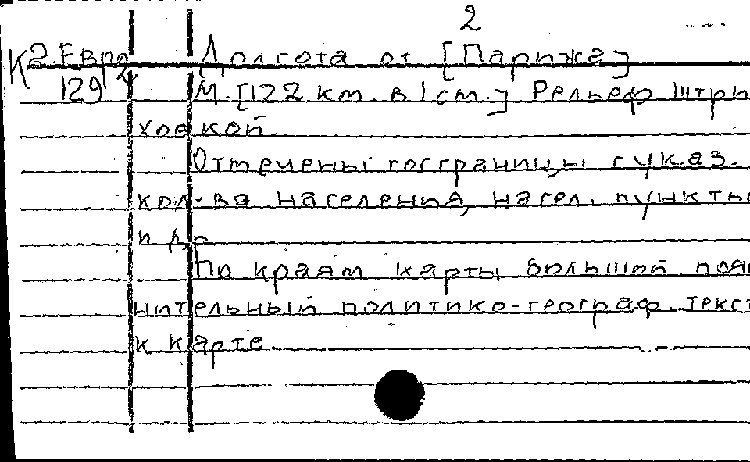 2
К 2 Евр 2 Долгота от [Парижа]
129 М. [122 км. в 1 см.] Рельеф штри
ховкой.
Отмечены госграницы с указ.
кол-ва населения, насел. пункты
и др.
По краям карты большой пояс
нительный политико-географ. текст
к карте